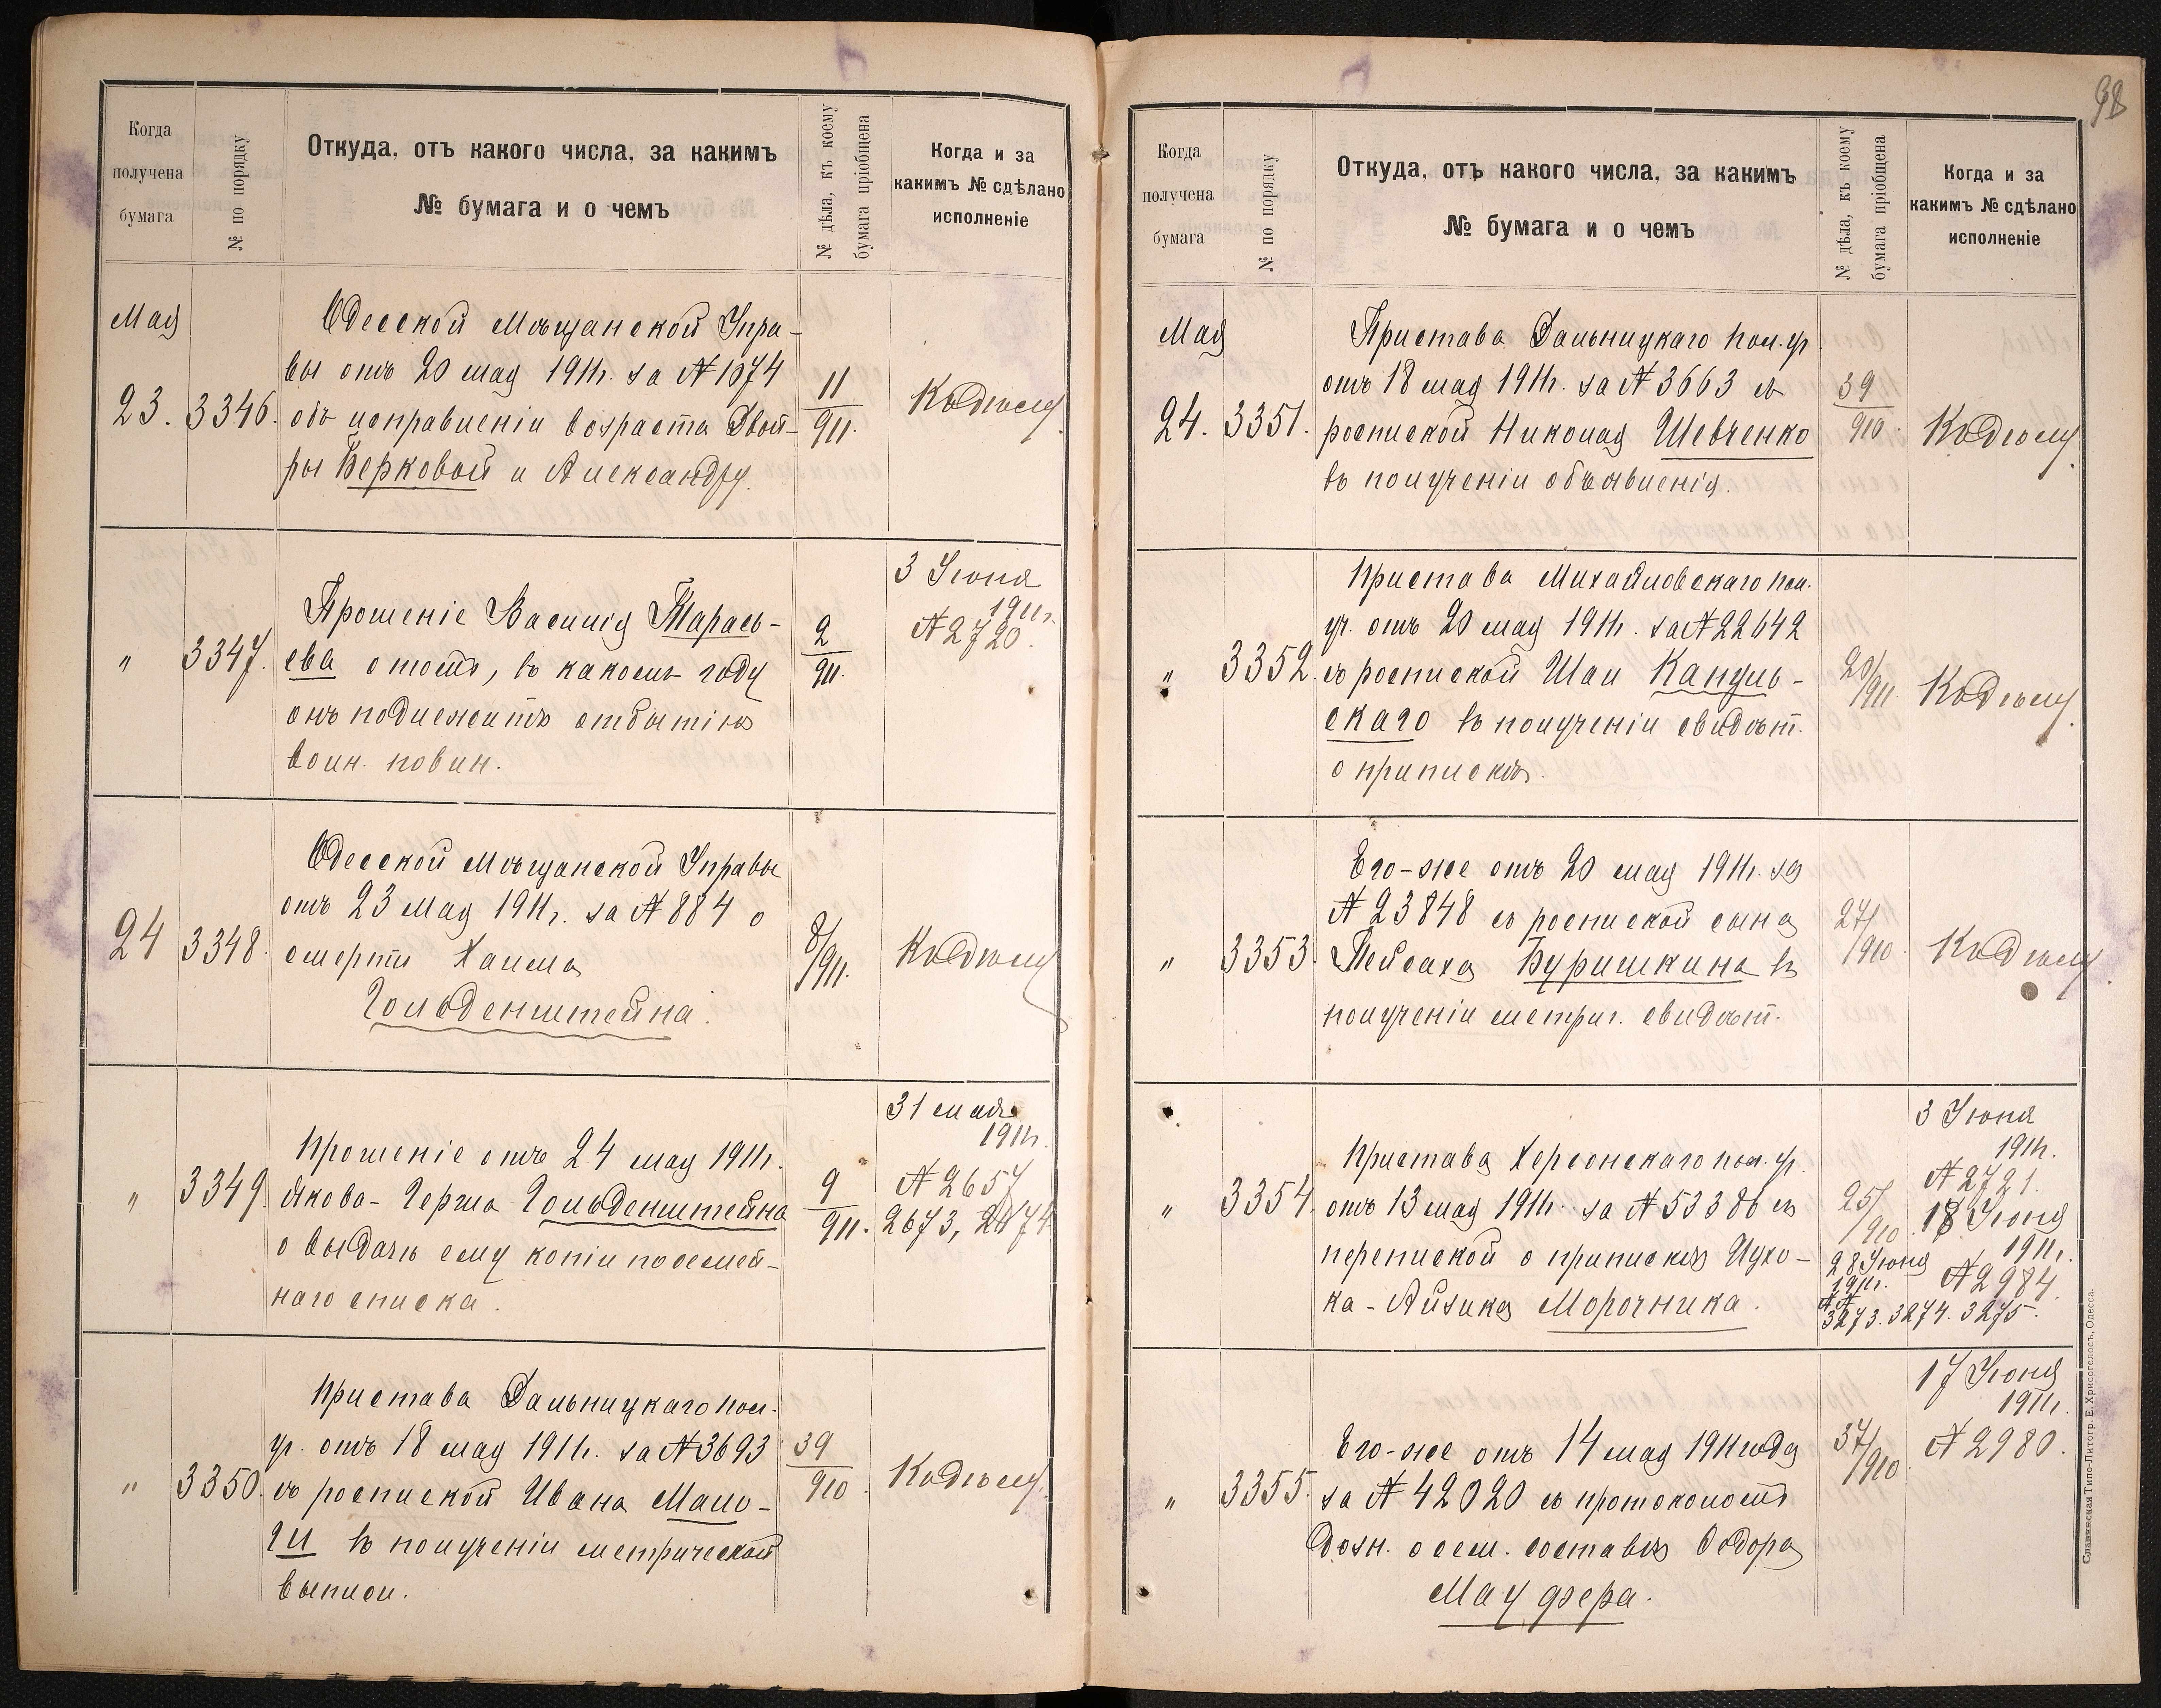 Когда получена бумага
№ по порядку
Откуда, отъ какого числа, за какимъ
№ бумага и о чемъ
№ дѣла, къ коему
бумага пріобщена
Когда и за
какимъ № сдѣлано
исполненіе
Мая
23. 3346.
Одесской Мѣщанской Упра-
вы отъ 20 мая 1911г. за № 1074
объ исправленіи возраста Двой-
ры Берковой и Александру.
11
911.
Къ дѣлу.
" 3347.
Прошеніе Василія Тарась-
ева о томъ, въ какомъ году
онъ подлежитъ отбытію
воин. повин.
2
911.
3 Іюня
1911г.
№ 2720.
24 3348.
Одесской Мѣщанской Управы
отъ 23 Мая 1911г. за № 884 о
смерти Хаима
Гольденштейна.
8/911.
Къ дѣлу
" 3349.
Прошеніе отъ 24 мая 1911г.
Якова-Герша Гольденштейна
о выдачѣ ему копіи посемей-
наго списка.
9
911.
31 мая
1911г.
№ 2657
2673, 2674
" 3350.
Пристава Дальницкаго пол.
уч. отъ 18 мая 1911г. за № 3693
съ роспиской Ивана Мало-
ги въ полученіи метрической
выписи.
39
910
Къ дѣлу.
98
Когда получена бумага
№ по порядку
Откуда, отъ какого числа, за какимъ
№ бумага и о чемъ
№ дѣла, къ коему
бумага пріобщена
Когда и за
какимъ № сдѣлано
исполненіе
Мая
24. 3351.
Пристава Дальницкаго пол. уч.
отъ 18 мая 1911г. за № 3663 съ
роспиской Николая Шевченко
въ полученіи объявленія.
39
910.
Къ дѣлу.
" 3352
Пристава Михайловскаго пол.
уч. отъ 20 мая 1911г. за № 22642
съ роспиской Шаи Кангель-
скаго въ полученіи свидѣт.
о припискѣ.
20/911
Къ дѣлу.
" 3353.
Его-же отъ 20 мая 1911г. за
№ 23848 съ роспиской сына
Пейсаха Буришкина въ
полученіи метрич. свидѣт.
27/910.
Къ дѣлу.
" 3354.
Пристава Херсонскаго пол. уч.
отъ 13 мая 1911г. за № 53386 съ
перепиской о припискѣ Ицхо-
ка-Айзика Морочника.
25/910.
3 Іюня
1911г.
№ 2721.
18 Іюня
1911г.
№ 2984.
28 Іюня
1911г.
№№
3273. 3274. 3275.
" 3355.
Его-же отъ 14 мая 1911 года
за № 42020 съ протоколомъ
дозн. о сем. составѣ Ѳедора
Мауфера.
37/910
17 Іюня
1911г.
№ 2980.
Славянская Типо-Литогр. Е. Хрисогелосъ, Одесса.